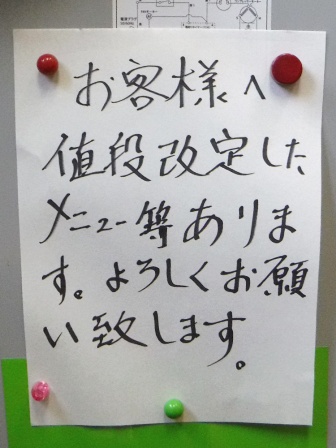 お客様へ
値段改定した
メニュー等ありま
す。よろしくお願
い致します。